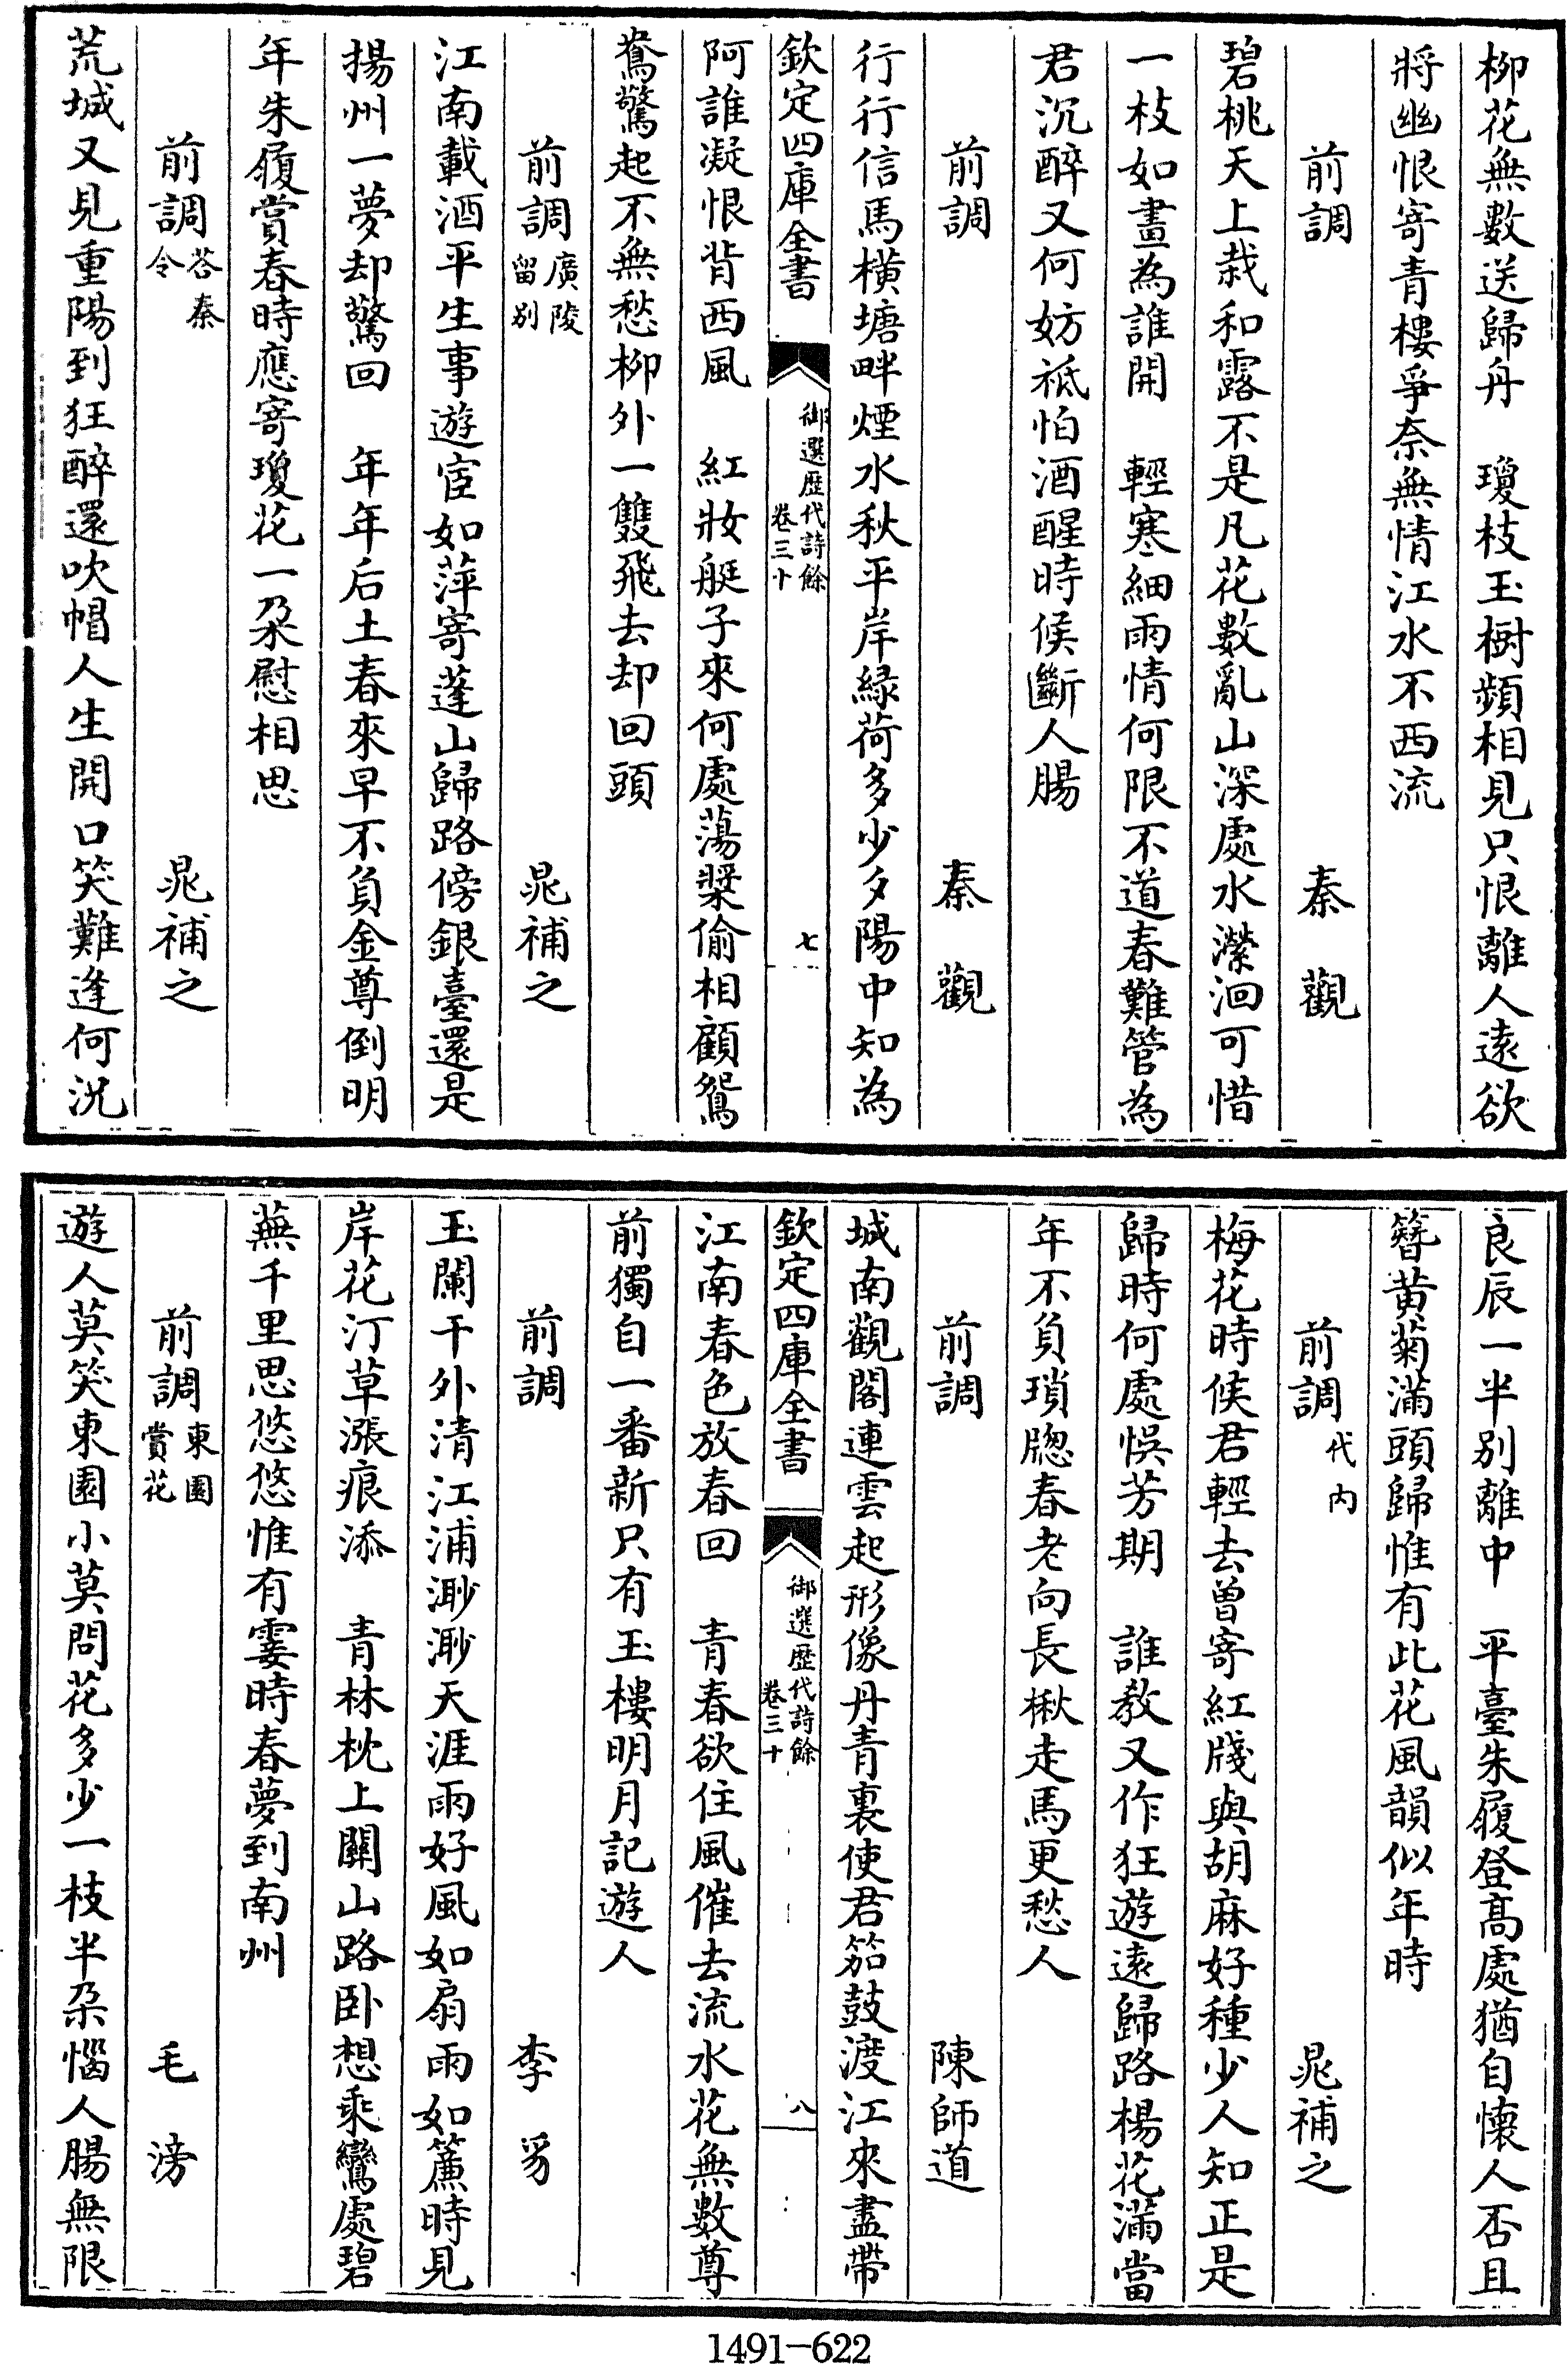 柳花無數送歸舟　瓊枝玉樹頻相見只恨離人遠欲
將幽恨寄青樓爭奈無情江水不西流
前調　秦觀
碧桃天上栽和露不是凡花數亂山深處水濚洄可惜
一枝如畫為誰開　輕寒細雨情何限不道春難管為
君沉醉又何妨祗怕酒醒時候斷人腸
前調　秦觀
行行信馬橫塘畔煙水秋平岸緑荷多少夕陽中知為
欽定四庫全書　御選歴代詩餘　卷三十　七
阿誰凝恨背西風　紅妝艇子來何處蕩槳偷相顧鴛
鴦驚起不無愁柳外一雙飛去却回頭
前調廣陵留別　晁補之
江南載酒平生事遊宦如萍寄蓬山歸路傍銀臺還是
揚州一夢却驚回　年年后土春來早不負金尊倒明
年朱履賞春時應寄瓊花一朶慰相思
前調荅秦令　晁補之
荒城又見重陽到狂醉還吹帽人生開口笑難逢何況
良辰一半别離中　平臺朱履登髙處猶自懷人否且
簪黄菊滿頭歸惟有此花風韻似年時
前調代内　晁補之
梅花時候君輕去曽寄紅牋與胡麻好種少人知正是
歸時何處悞芳期　誰教又作狂遊遠歸路楊花滿當
年不負瑣牕春老向長楸走馬更愁人
前調　陳師道
城南觀閣連雲起形像丹青裏使君笳鼓渡江來盡帶
欽定四庫全書　御選歴代詩餘　卷三十　八
江南春色放春回　青春欲住風催去流水花無數尊
前獨自一番新只有玉樓明月記遊人
前調　李豸
玉闌干外清江浦渺渺天涯雨好風如扇雨如簾時見
岸花汀草漲痕添　青林枕上關山路卧想乘鸞處碧
蕪千里思悠悠惟有霎時春夢到南州
前調東園賞花　毛滂
遊人莫笑東園小莫問花多少一枝半朶惱人腸無限
1491-622